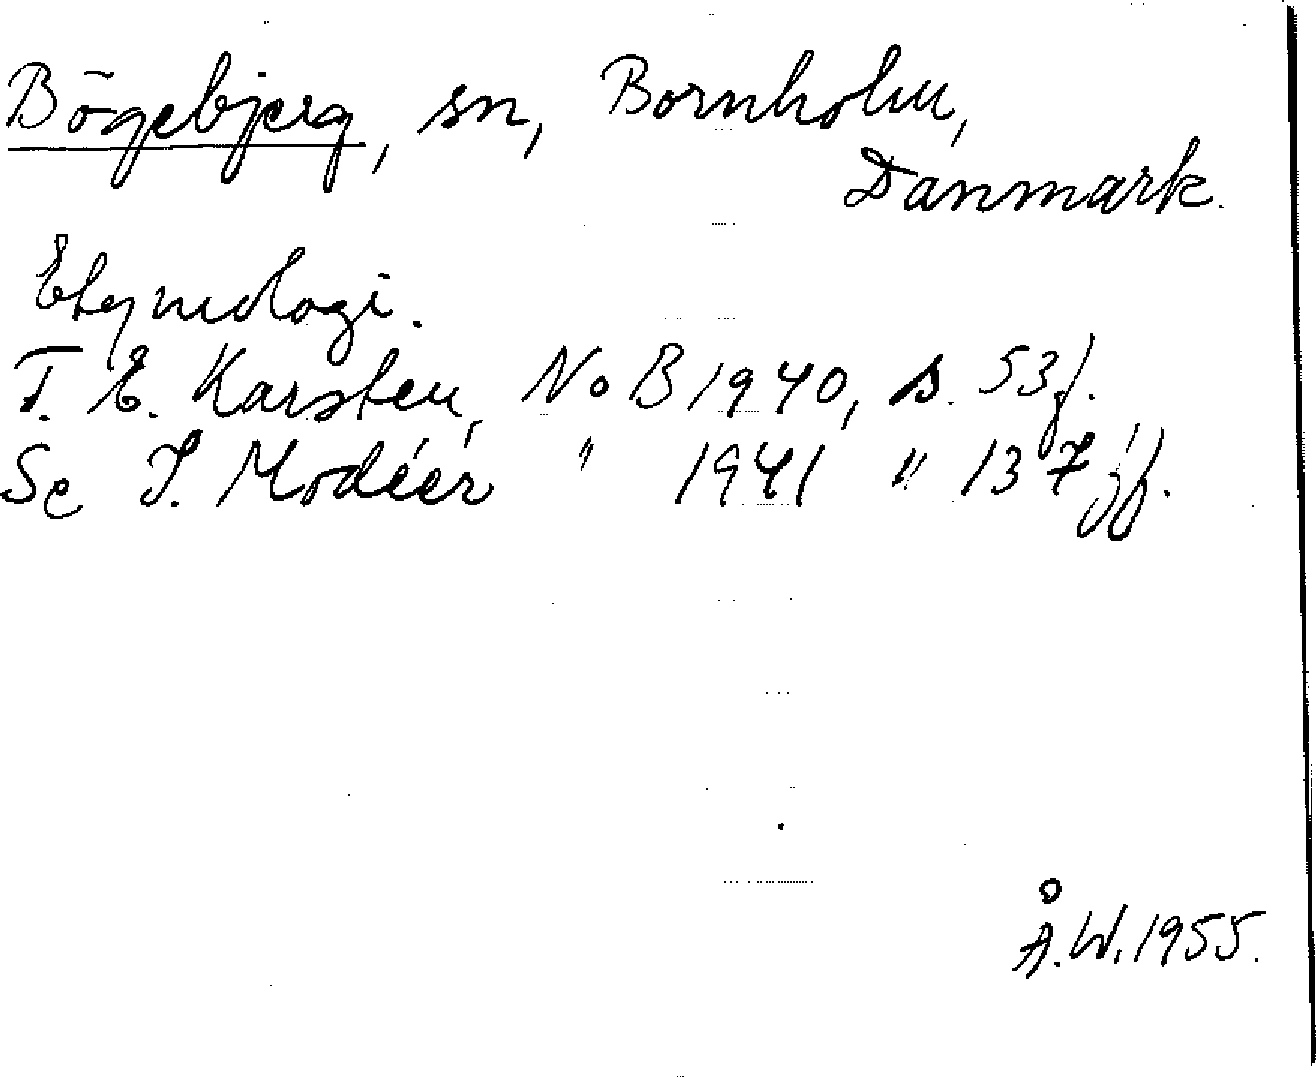 Bögebjerg, sn, Bornholm,
Danmark.
Etymologi.
T. E. Karsten, NoB 1940, s. 53 f.
Se I. Modéer " 1941 " 137 ff.
Å.W. 1955.